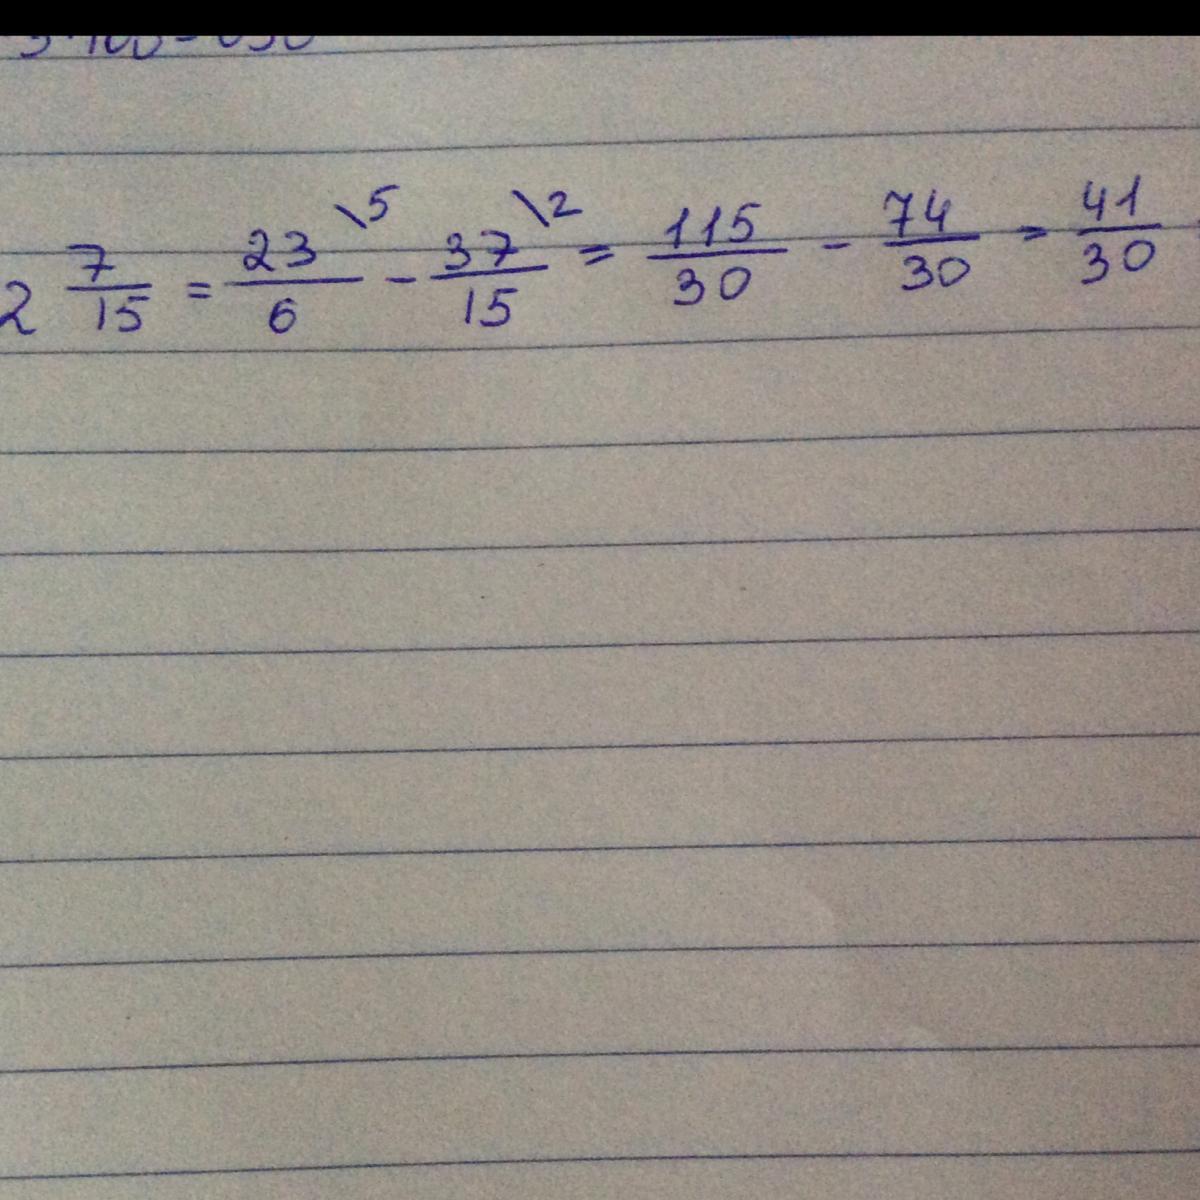 2 7/15 = 23/6 \5 - 37/15 \2 = 115/30 - 74/30 = 41/30